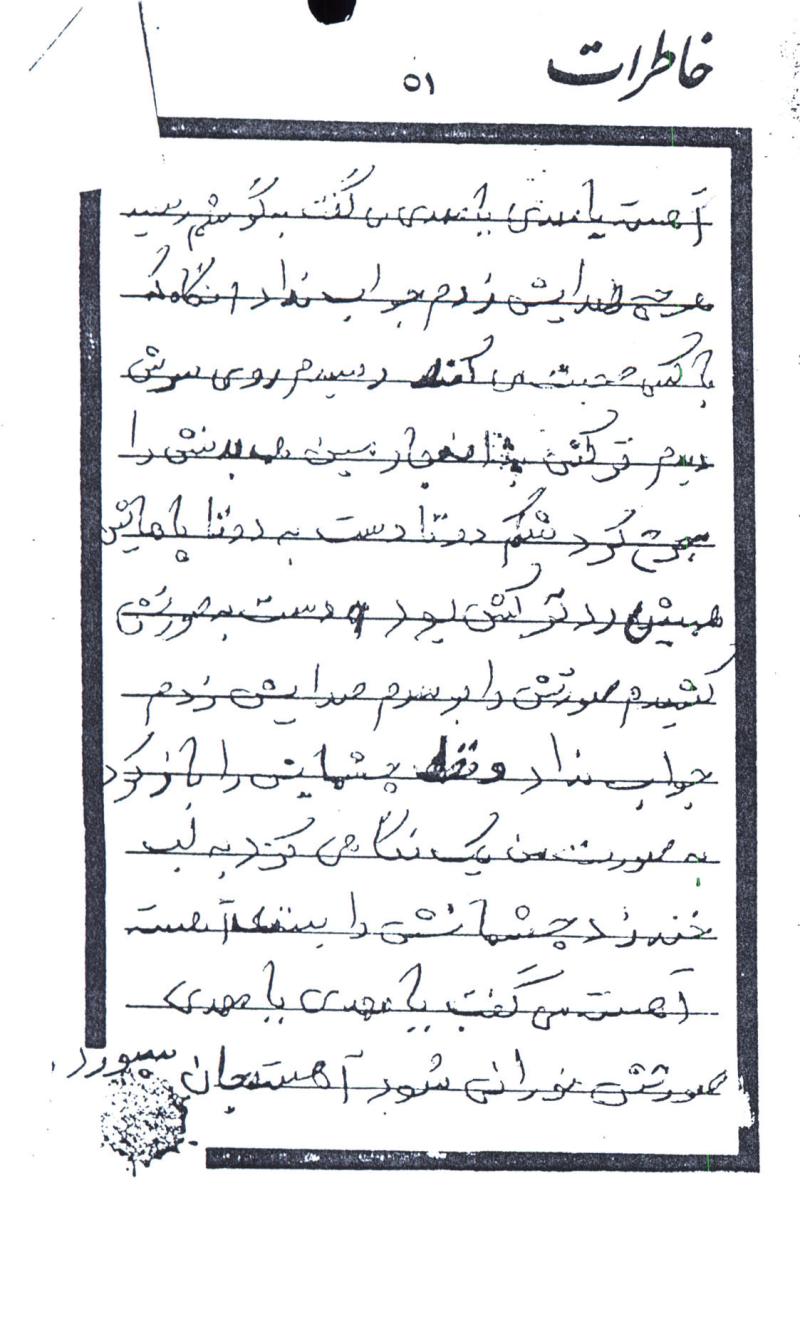 خاطرات
۵۱
آهسته یا مهدی یا مهدی می گفت به گوشم رسید
هرچی صدایش زدم جواب نداد انگار که
با کسی صحبت می کند رسیدم روی سرش
دیدم ترکش سینه بدنش را
کرد شکم دوتا دست به دوتا پاهایش
همیش رد ترکش بود دست به صورتش
کشیدم صورتش را بوسیدم صدایش زدم
جواب نداد چشمایش را باز کرد
به صورت من یک نگاهی کرد به لب
خند زد چشمانش را بسته آهسته
آهسته می گفت یا مهدی یا مهدی
صورتش نورانی شود آهسته جان سپورد.